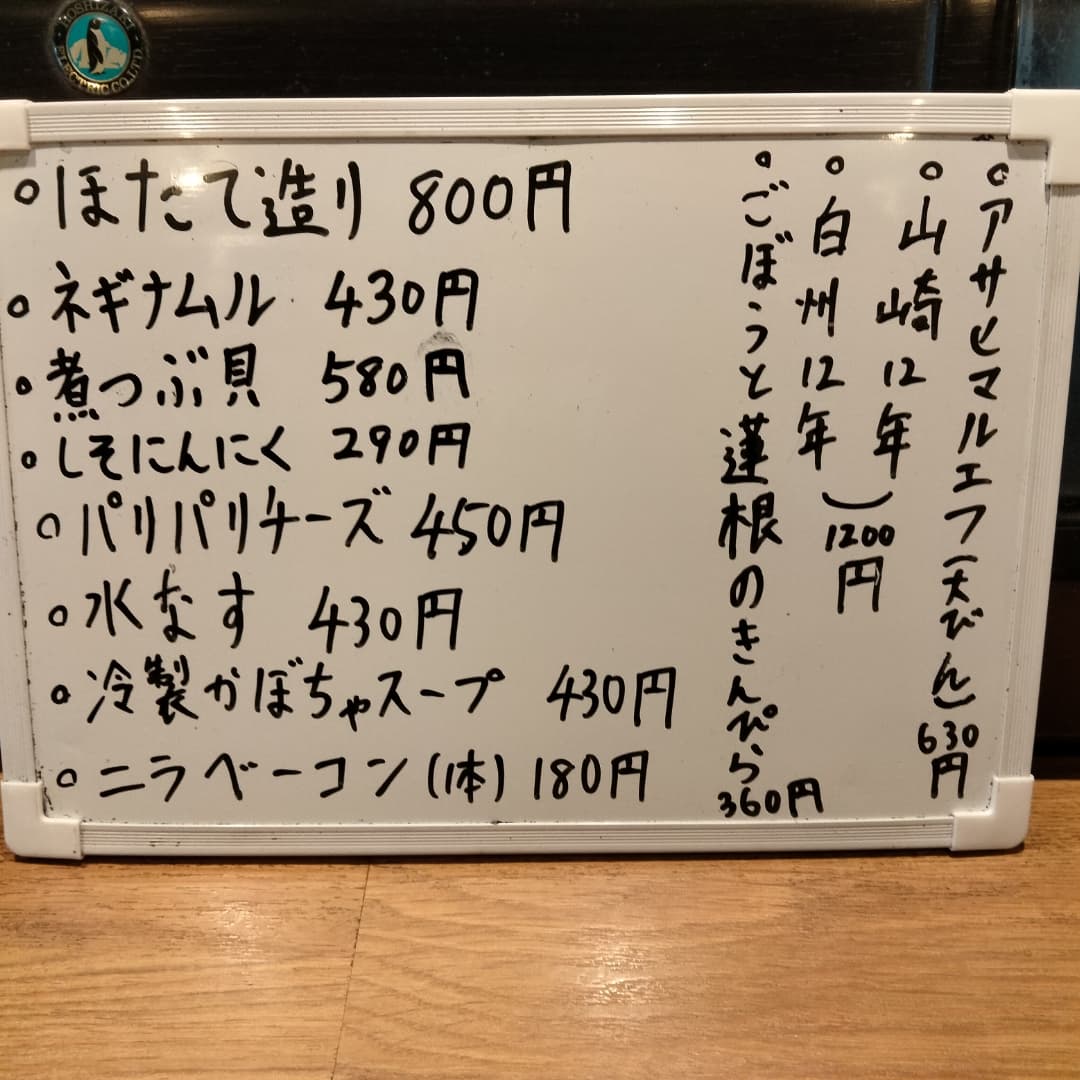 HOSHIZAKI
ELECTRIC CO.,LTD.
○ほたて造り 800円
○ネギナムル 430円
○煮つぶ貝 580円
○しそにんにく 290円
○パリパリチーズ 450円
○水なす 430円
○冷製かぼちゃスープ 430円
○ニラベーコン(1本) 180円
○アサヒマルエフ(大びん) 630円
○山崎12年
○白州12年
1200円
○ごぼうと蓮根のきんぴら 360円